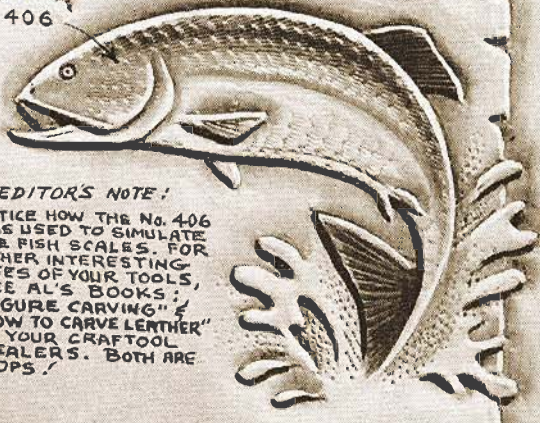 406
EDITOR'S NOTE!
TICE HOW THE No. 406
S USED TO SIMULATE
E FISH SCALES. FOR
HER INTERESTING
ES OF YOUR TOOLS,
E AL'S BOOKS;
GURE CARVING" &
OW TO CARVE LEATHER"
YOUR CRAFTOOL
EALERS. BOTH ARE
OPS!